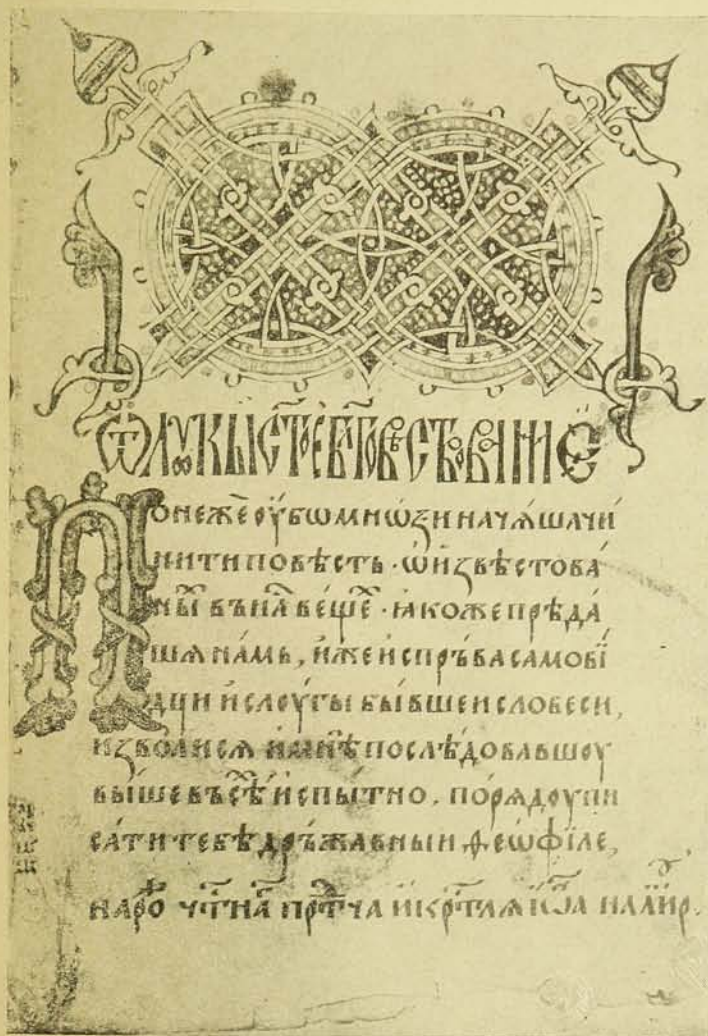 Ѿ лꙋкы ст҃ое бл҃говѣствованїе
Понеже оубѡ мнѡзи начѧша чи
нити повѣсть · ѡ и҆звѣстова́
ны́ⷯ въ на́ⷭ ве́щеⷯ · ꙗкоже прѣда́
шѧ на́мь, и҆же и҆спръва самови́
дци и҆ слоугы бы́вшеи словеси,
изволисѧ и҆ мнѣ послѣдовавшоу
вы́ше въсѣⷯ и҆спы́тно . по рѧдоу пи
са́ти тебѣ дръжавныи ѳеѡфіле,
на рⷪ҇ жⷣо чⷭ҇тна́ прⷣтча и҆ кр҃тлѧ іѡ҃а